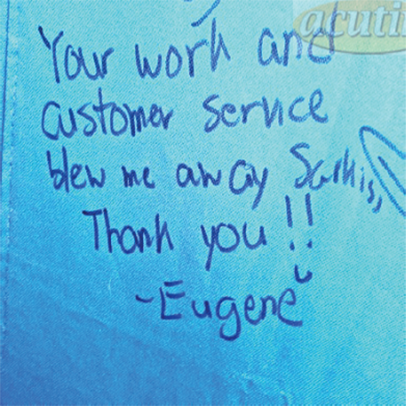 acuti
Your work and
customer service
blew me away Sarkis,
Thank you!!
-Eugene